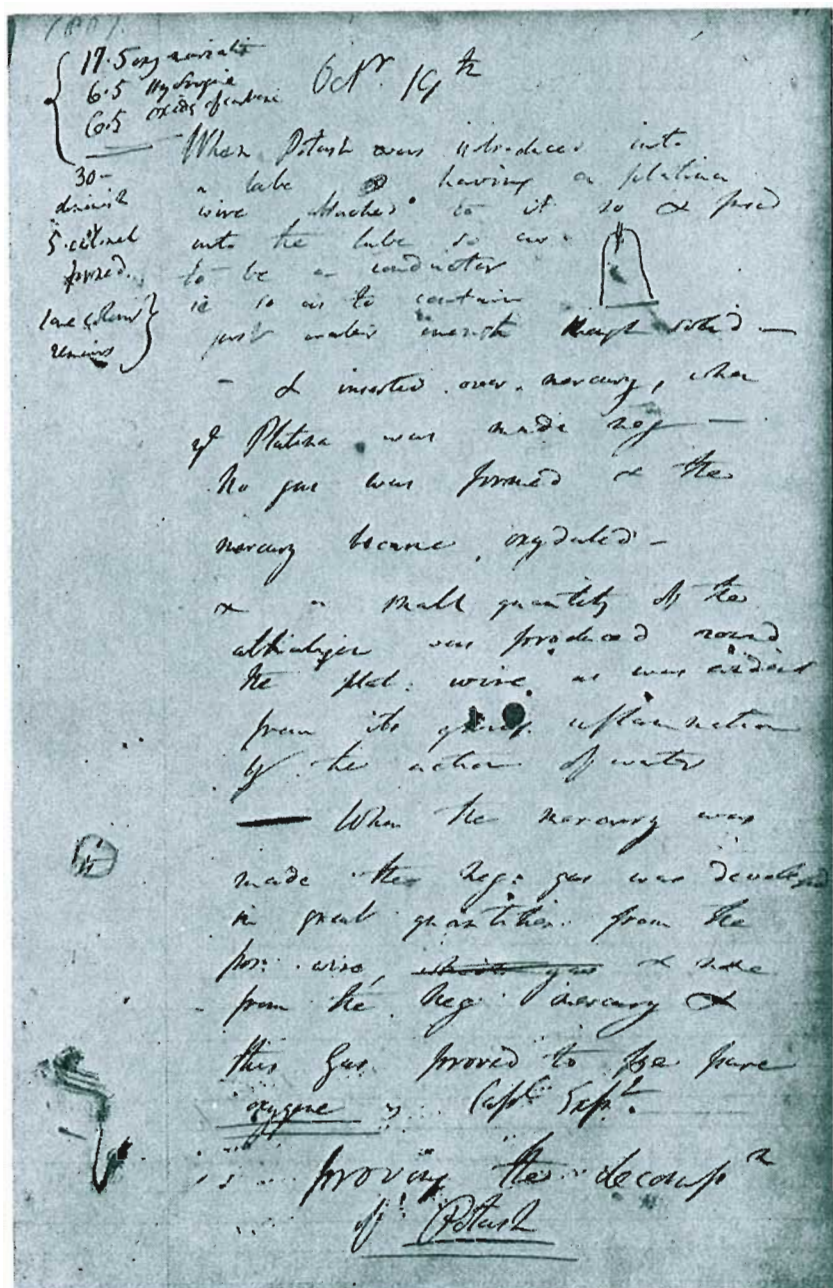 17.5 oxymuriatic
6.5 Hydrogene
6.5 oxide of carbone
30 -
diminish
5.
formed.
remains
Octr. 19th
When Potash was introduced into
a tube having a platina
wire attached to it so & fused
into the tube so as
to be a conductor
ie so as to contain
just water enough though solid —
— & inserted over mercury, when
ye Platina was made neg —
No gas was formed & the
mercury became oxydated —
& a small quantity of the
alkaligen was produced round
the plat: wire as was evident
from its quick inflammation
by the action of water
— When the mercury was
made the neg: gas was developed
in great quantities from the
pos: wire, & none
from the neg mercury &
this gas proved to be pure
oxygene Capl. Expt.
proving the decompn
of Potash